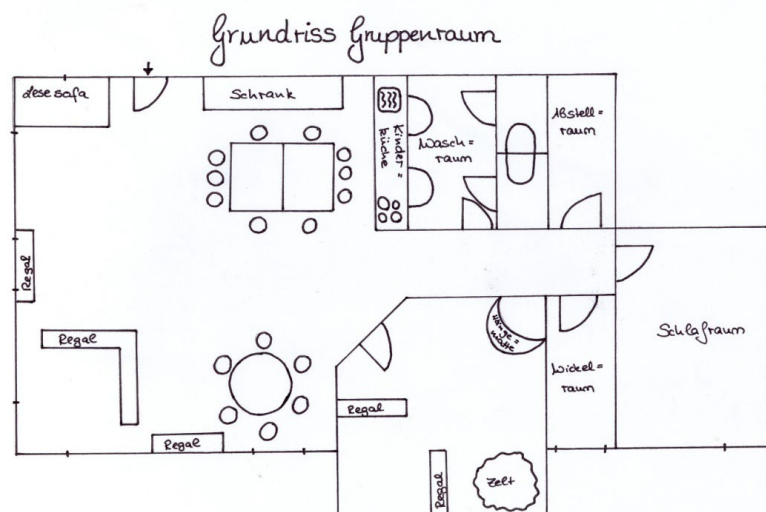 Grundriss Gruppenraum
Lesesofa
Schrank
Kinder=
küche
Wasch=
raum
Abstell=
raum
Regal
Regal
Regal
Regal
Regal
Hänge=
matte
Wickel=
raum
Schlafraum
Zelt